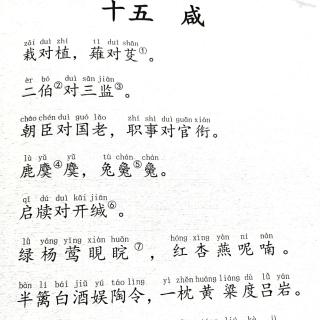 十五 咸
zāi duì zhí tì duì shān
栽对植，薙对芟①。
èr bó duì sān jiān
二伯②对三监③。
cháo chén duì guó lǎo zhí shì duì guān xián
朝臣对国老，职事对官衔。
lù yǔ yǔ tù chán chán
鹿麌④麌，兔毚⑤毚。
qǐ dú duì kāi jiān
启牍对开缄⑥。
lǜ yáng yīng xiàn huǎn hóng xìng yàn ní nán
绿杨莺睍睆⑦，红杏燕呢喃。
bàn lí bái jiǔ yú táo lìng yì zhěn huáng liáng dù lǚ yán
半篱白酒娱陶令，一枕黄粱度吕岩。